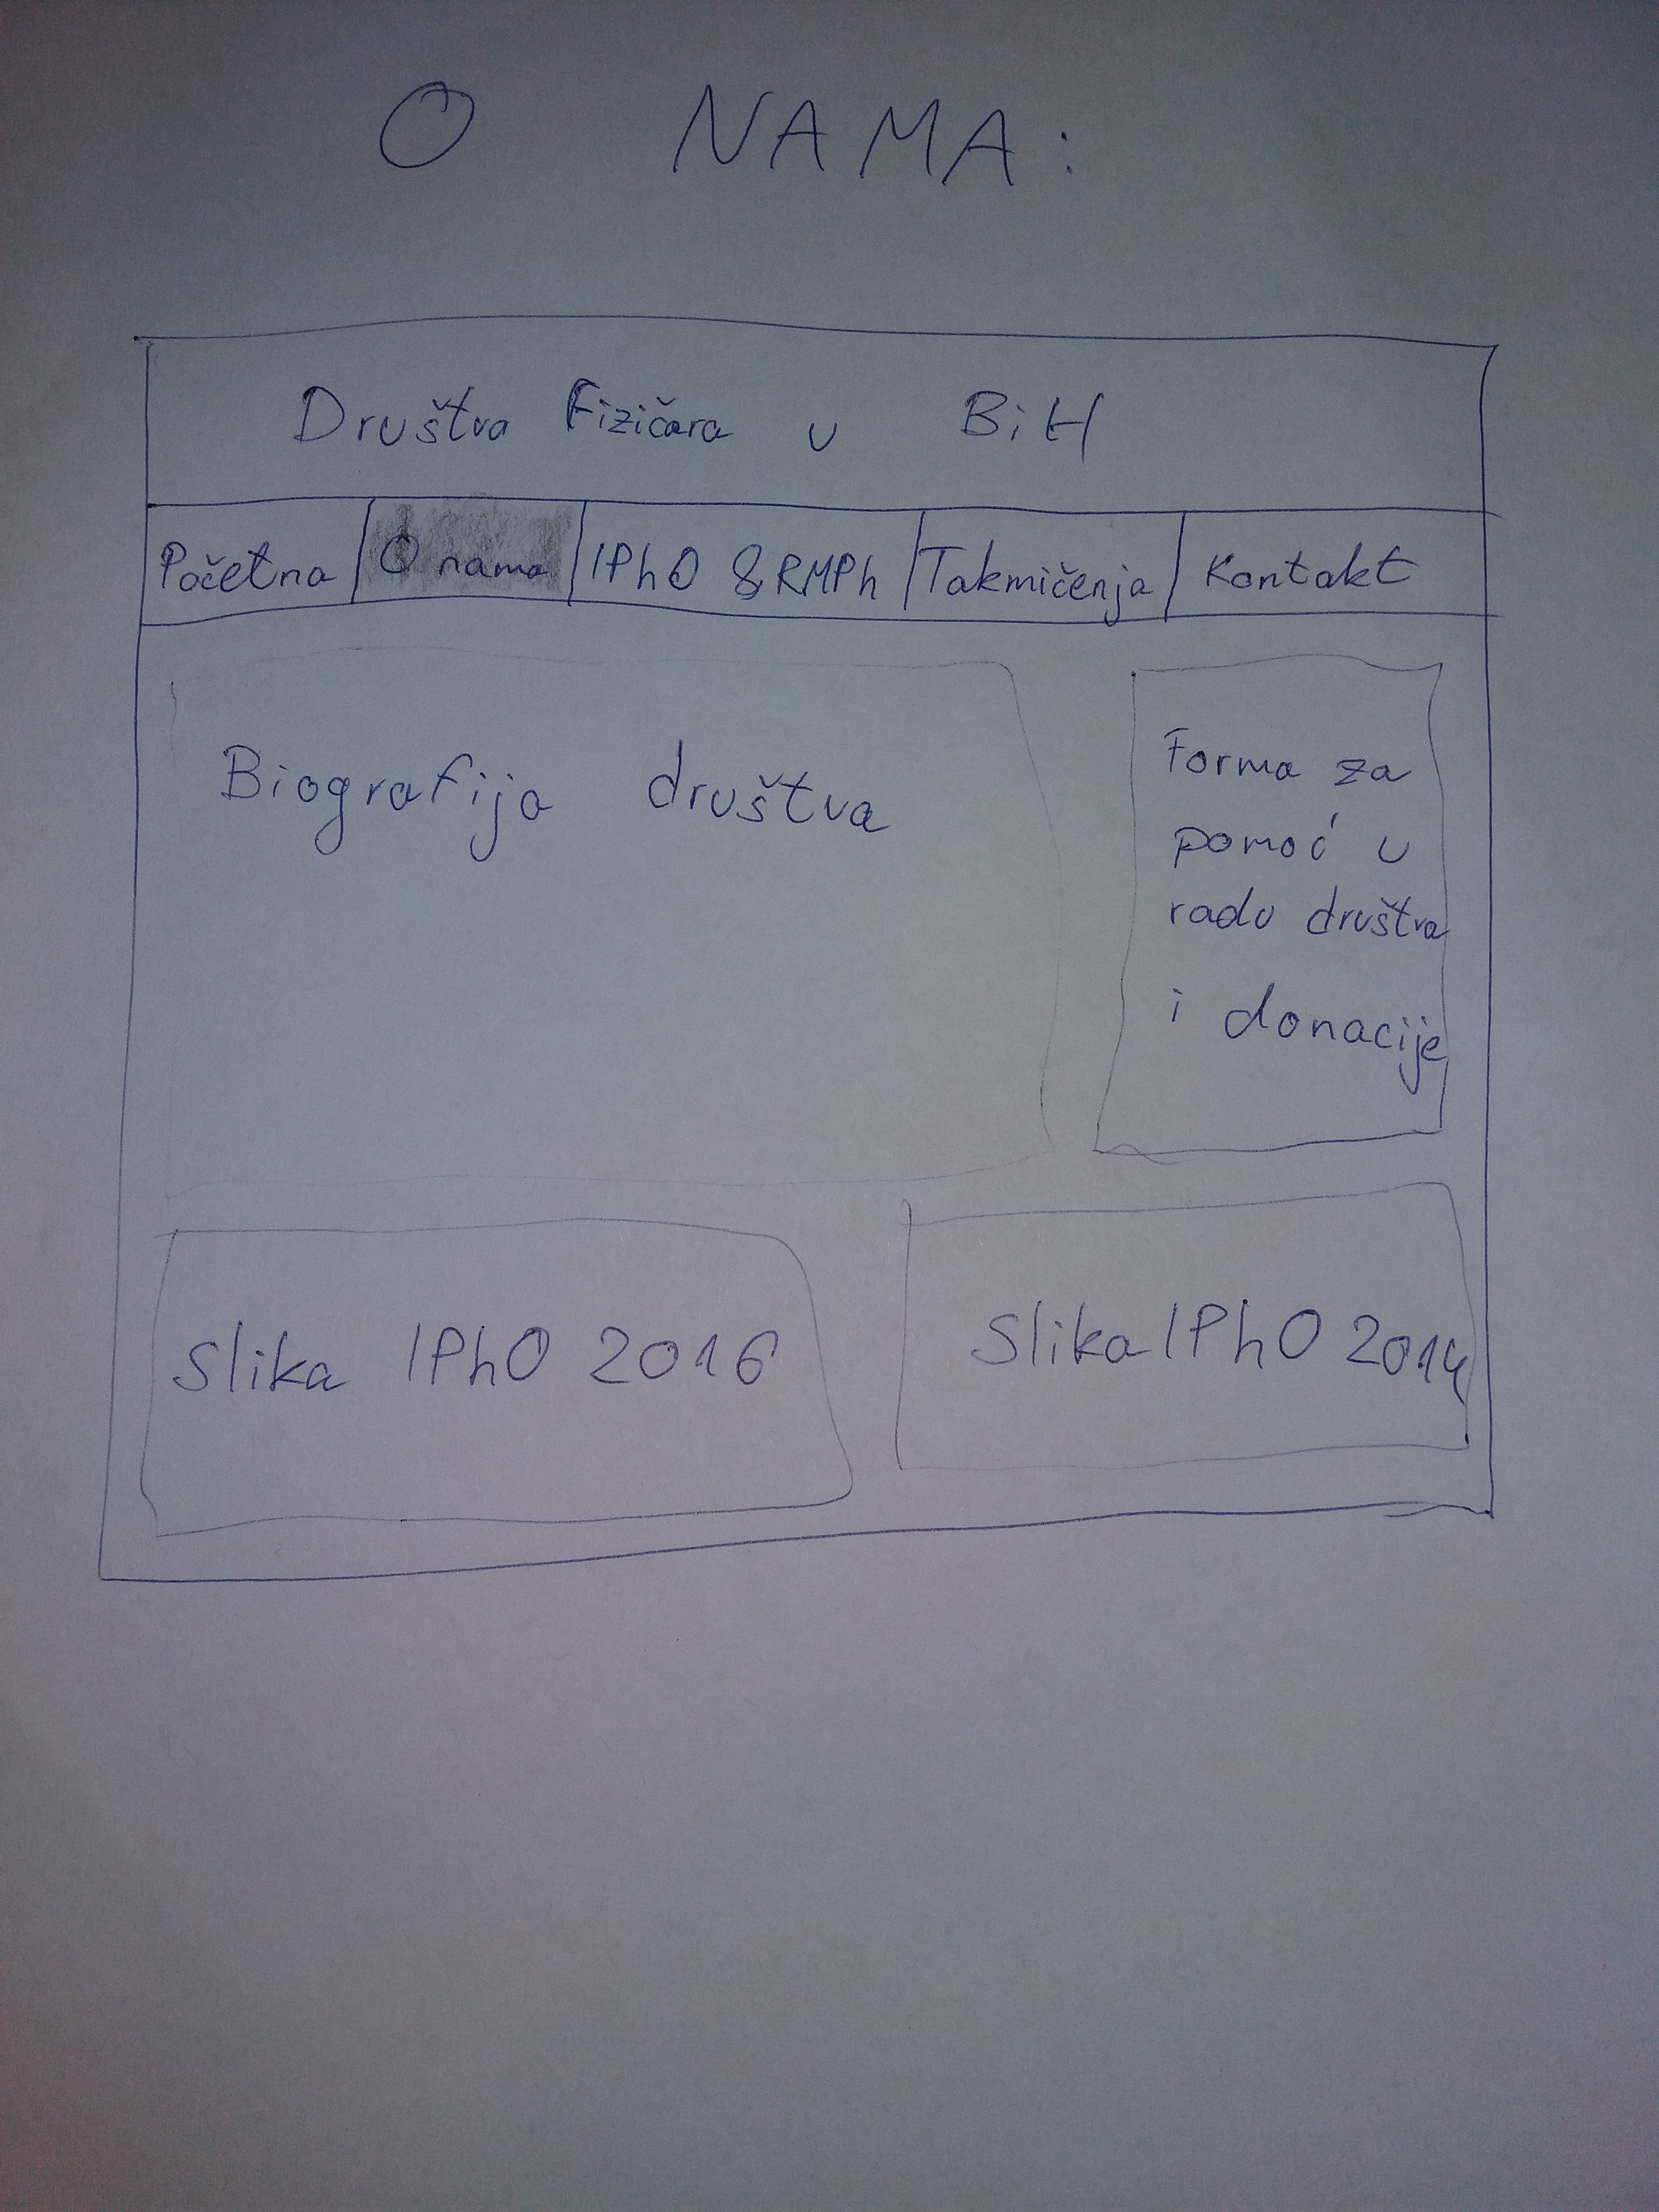 O NAMA:
Društva Fizičara u BiH
Početna O nama IPhO & RMPh Takmičenja Kontakt
Biografija društva
Forma za
pomoć u
radu društva
i donacije
Slika IPhO 2016
Slika IPhO 2014